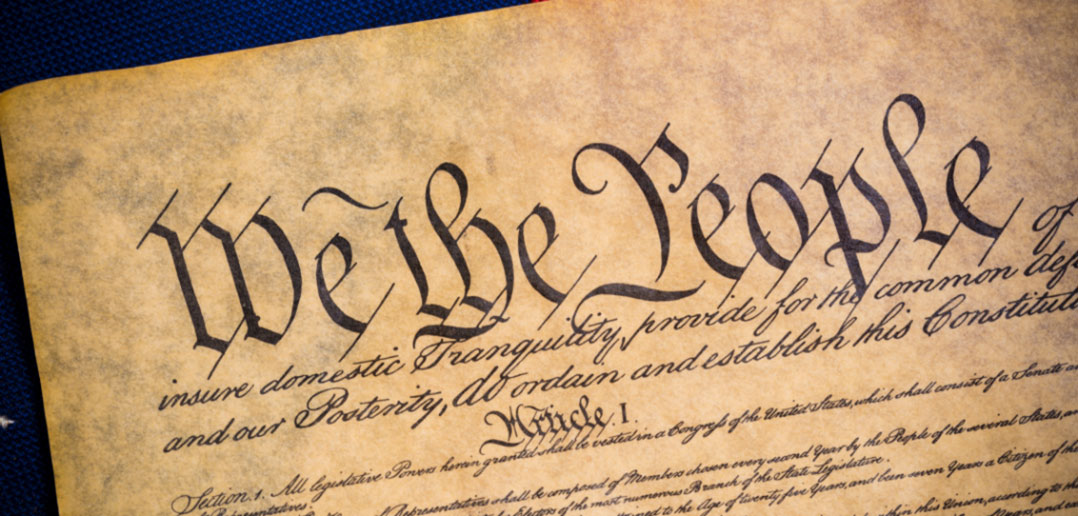 We the People of
insure domestic Tranquility, provide for the common defe
and our Posterity, do ordain and establish this Constituti
Article. I.
Section. 1. All legislative Powers herein granted shall be vested in a Congress of the United States, which shall consist of a Senate an
Representatives.
Representatives shall be composed of Members chosen every second Year by the People of the several States, an
Electors of the most numerous Branch of the State Legislature.
attained to the Age of twenty five Years, and been seven Years a Citizen of the
within this Union, according to the
Years, and